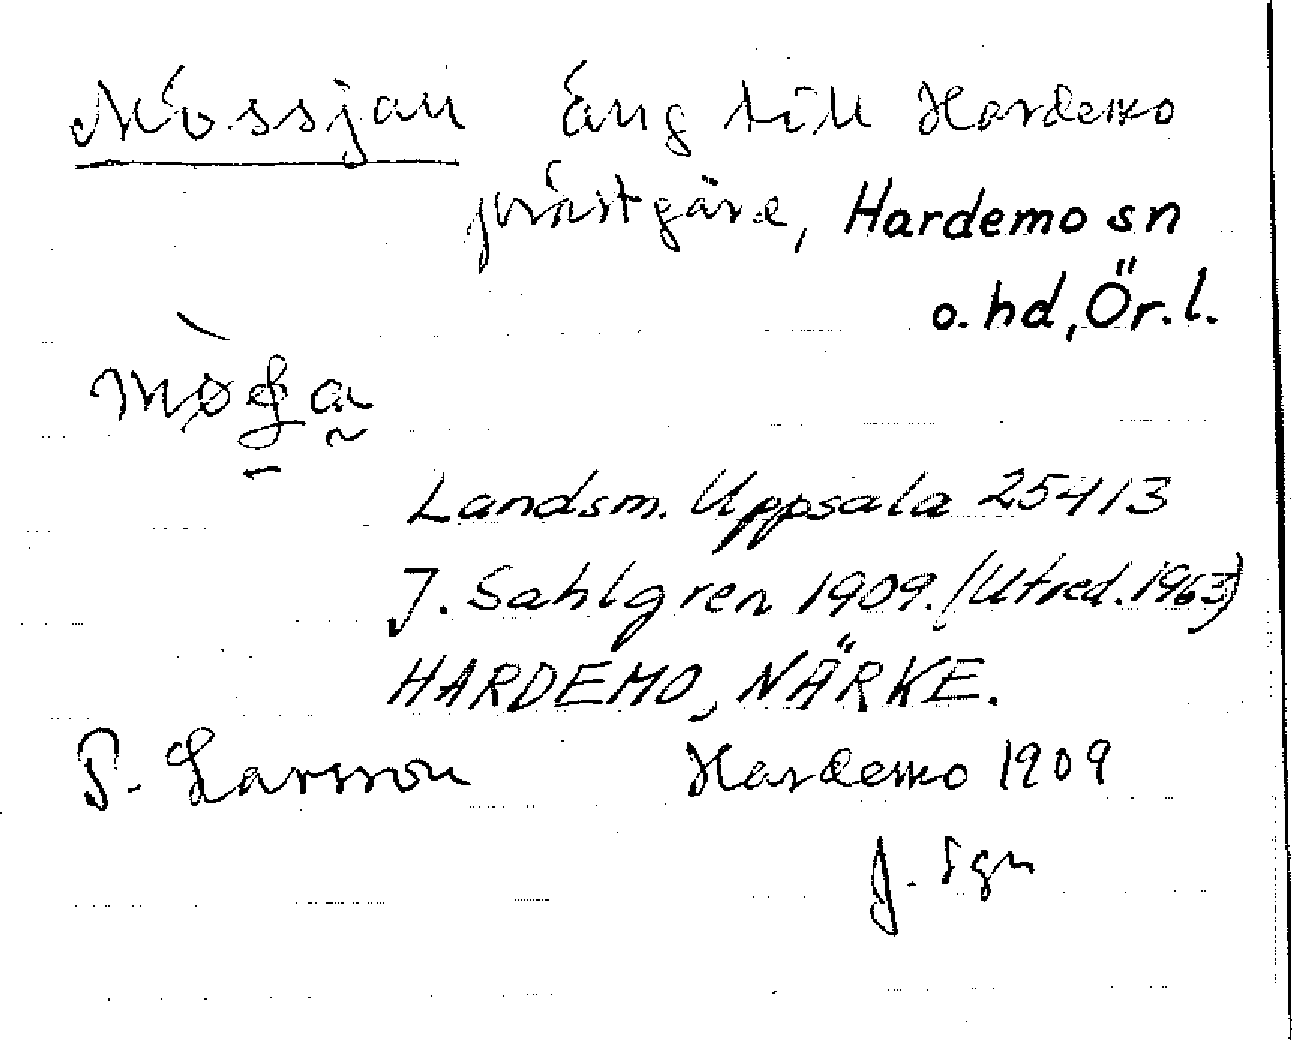 Mössjan Äng till Hardemo
prästgård, Hardemo sn
o. hd, Ör. l.
Landsm. Uppsala 25413
J. Sahlgren 1909. (Utred. 1963)
HARDEMO, NÄRKE.
P. Larsson Hardemo 1909
J. Sgn